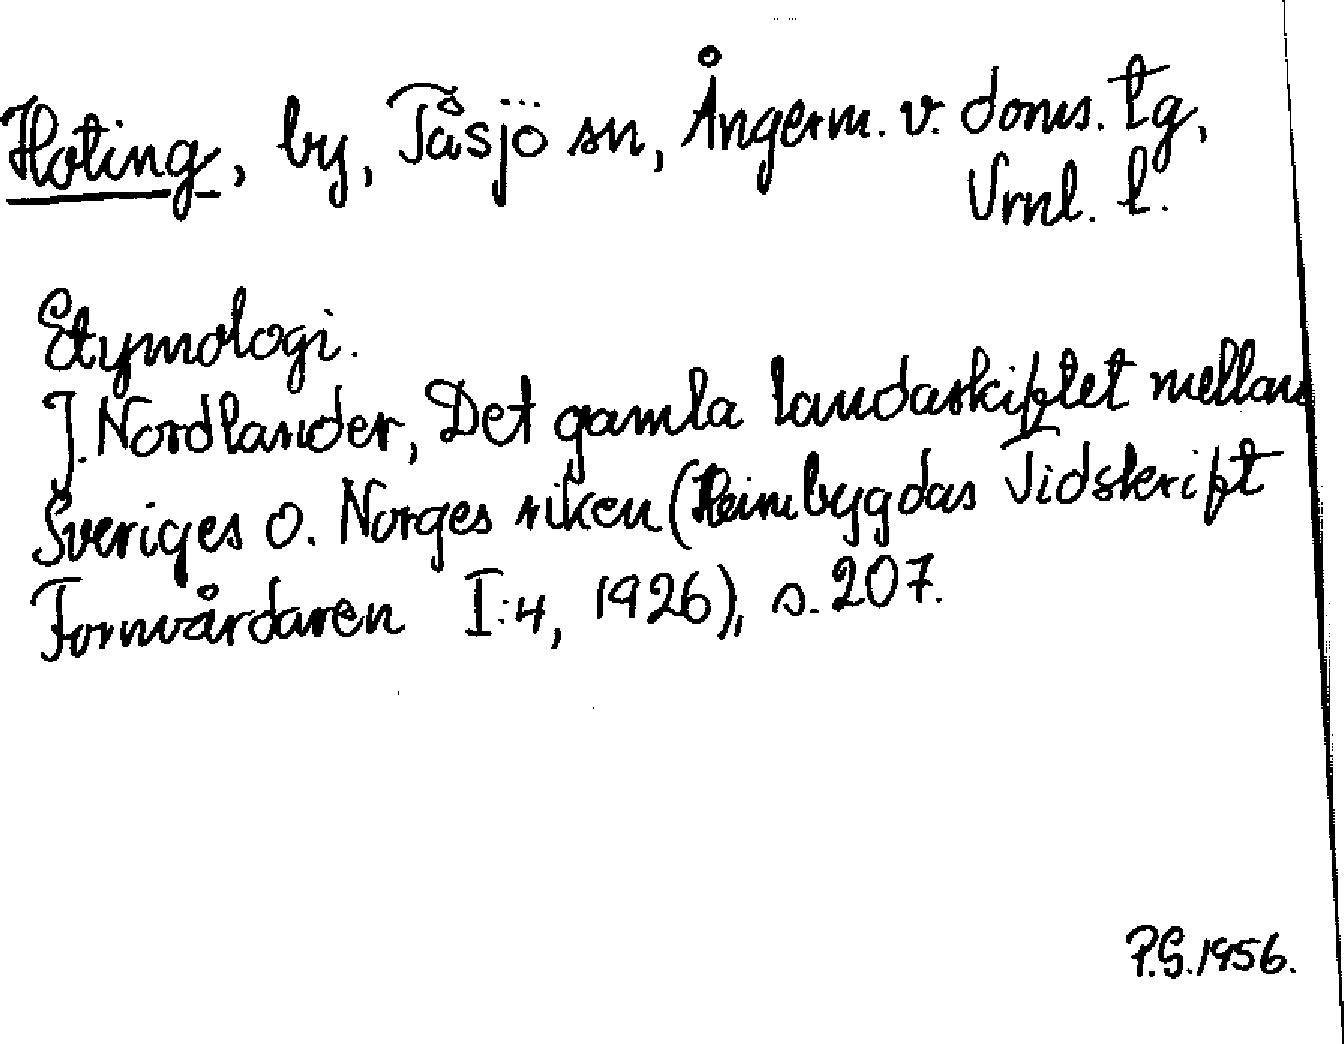 Hoting, by, Tåsjö sn, Ångerm. v. doms. tg,
Vrnl. l.
Etymologi.
J. Nordlander, Det gamla landaskiftet mellan
Sveriges o. Norges riken (Heimbygdas Tidskrift
Fornvårdaren I:4, 1926), s. 207.
P.G. 1956.